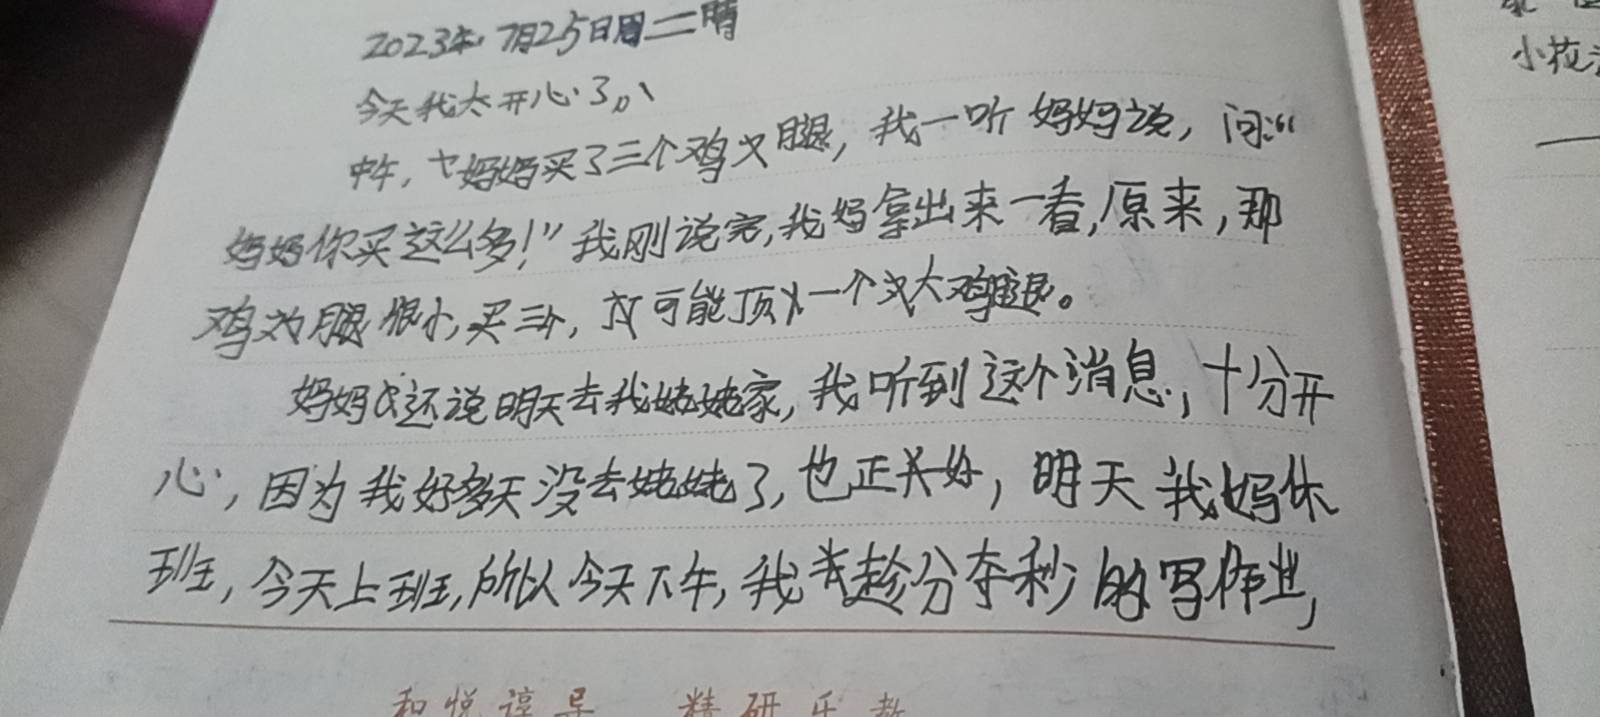 2023年7月25日周二晴
今天我太开心了。
中午，妈妈买了三个鸡腿，我一听妈妈说，问：“
妈妈你买这么多！”我刚说完，我妈拿出来一看，原来，那
鸡腿很小，买三个，才可能顶一个大鸡腿。
妈妈还说明天去我姥姥家，我听到这个消息，十分开
心，因为我好多天没去姥姥了，也正好，明天我妈休
班，今天上班，所以今天下午，我趁分夺秒的写作业，
和悦谆导 精研乐教
小花